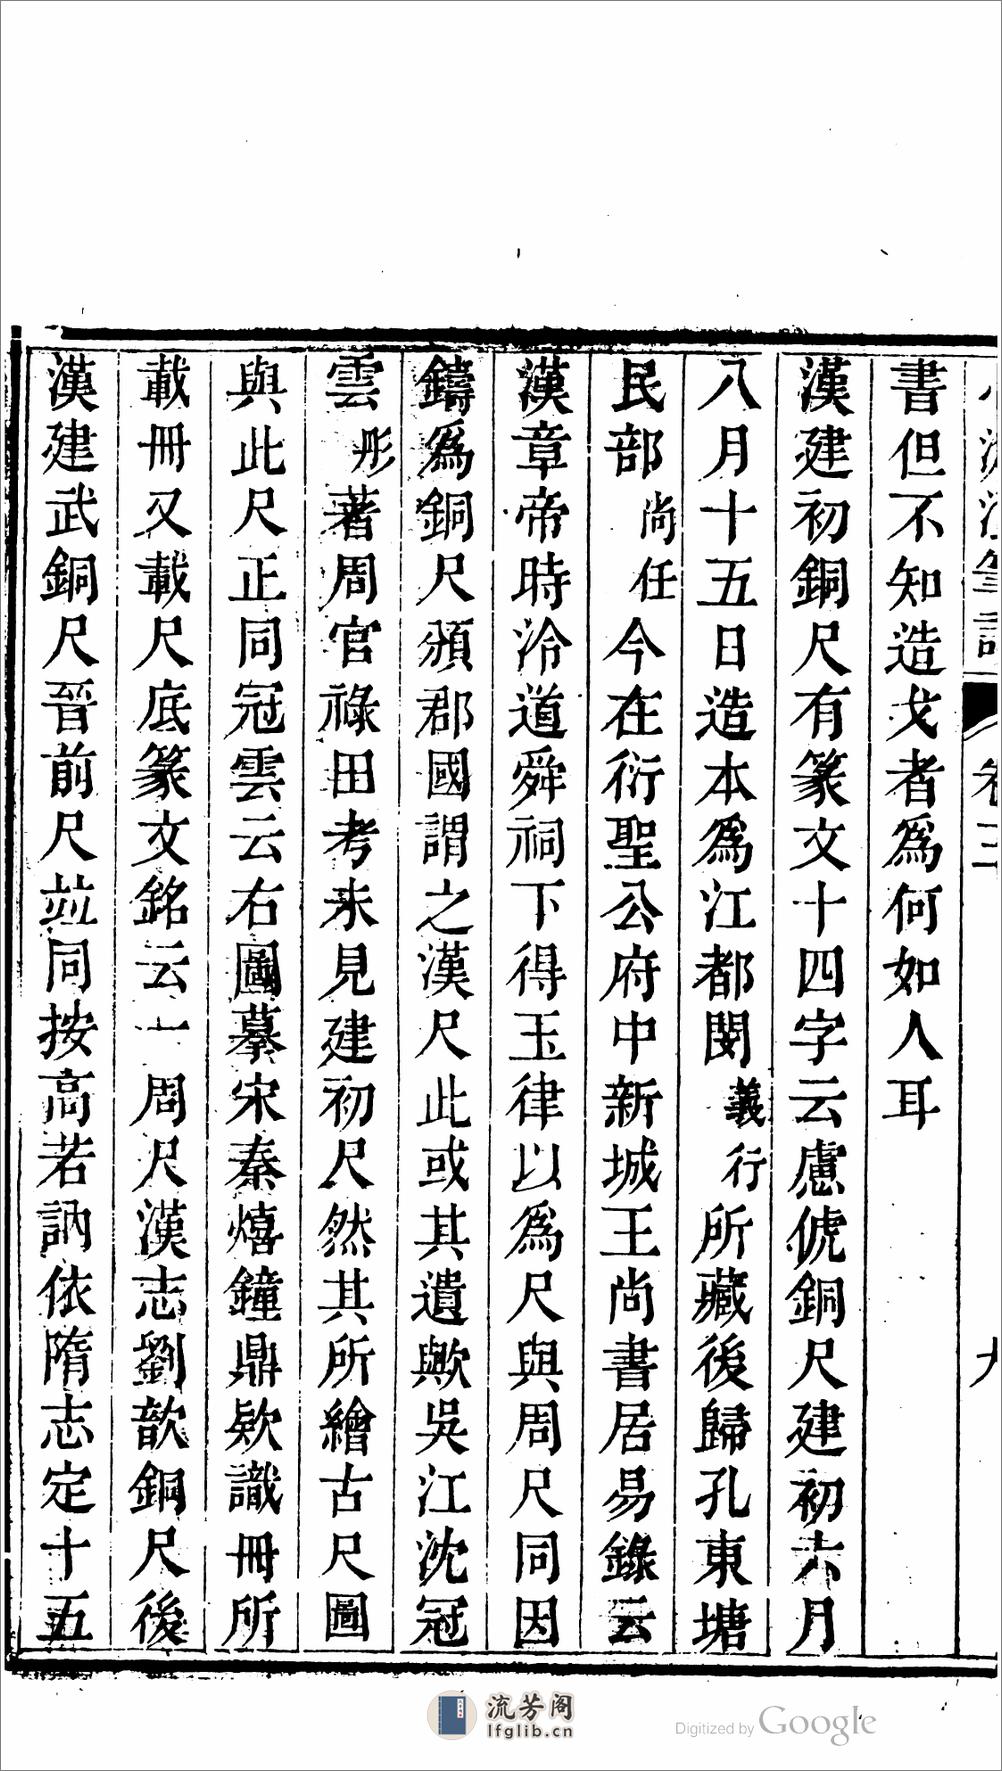 書但不知造戈者爲何如人耳
漢建初銅尺有篆文十四字云慮俿銅尺建初六月
八月十五日造本爲江都閔義行所藏後歸孔東塘
民部尚任今在衍聖公府中新城王尚書居易錄云
漢章帝時泠道舜祠下得玉律以爲尺與周尺同因
鑄爲銅尺頒郡國謂之漢尺此或其遺歟吳江沈冠
雲彤著周官祿田考未見建初尺然其所繪古尺圖
與此尺正同冠雲云右圖摹宋秦熺鐘鼎欵識冊所
載冊又載尺底篆文銘云一周尺漢志劉歆銅尺後
漢建武銅尺晉前尺竝同按高若訥依隋志定十五
流芳阁
lfglib.cn
Digitized by Google